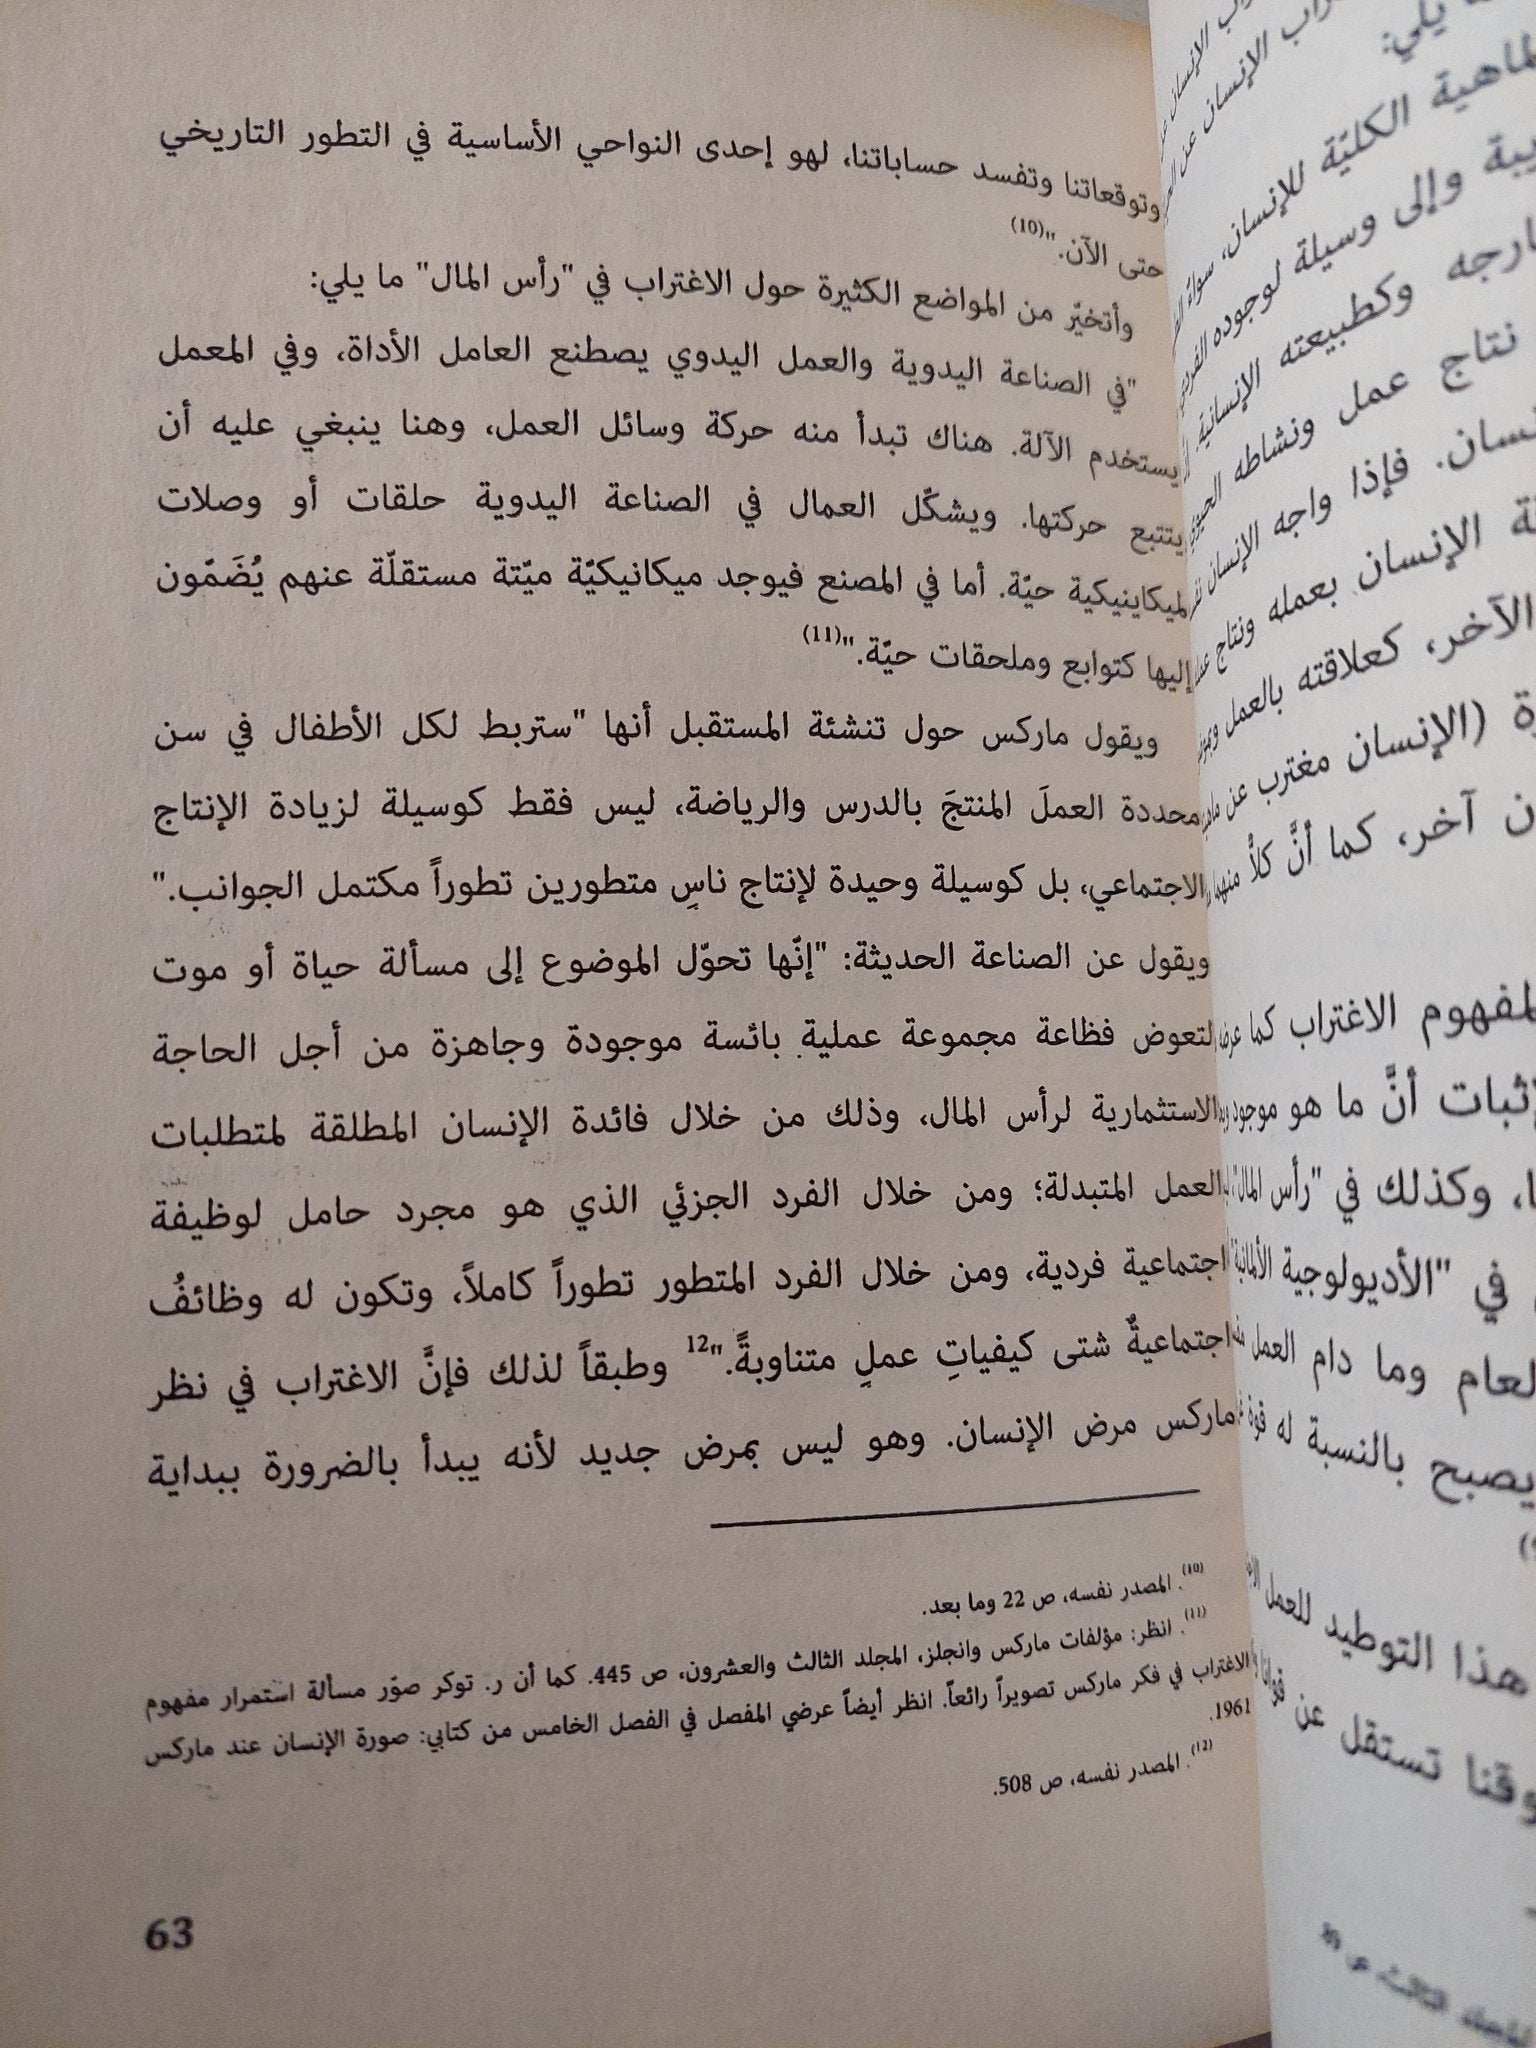 وتوقعاتنا وتفسد حساباتنا، لهو إحدى النواحي الأساسية في التطور التاريخي
حتى الآن."(10)
وأتخيّر من المواضع الكثيرة حول الاغتراب في "رأس المال" ما يلي:
"في الصناعة اليدوية والعمل اليدوي يصطنع العامل الأداة، وفي المعمل
يستخدم الآلة. هناك تبدأ منه حركة وسائل العمل، وهنا ينبغي عليه أن
يتتبع حركتها. ويشكّل العمال في الصناعة اليدوية حلقات أو وصلات
لميكاينيكية حيّة. أما في المصنع فيوجد ميكانيكيّة ميّتة مستقلّة عنهم يُضَمّون
إليها كتوابع وملحقات حيّة."(11)
ويقول ماركس حول تنشئة المستقبل أنها "ستربط لكل الأطفال في سن
محددة العملَ المنتجَ بالدرس والرياضة، ليس فقط كوسيلة لزيادة الإنتاج
الاجتماعي، بل كوسيلة وحيدة لإنتاج ناسٍ متطورين تطوراً مكتمل الجوانب."
ويقول عن الصناعة الحديثة: "إنّها تحوّل الموضوع إلى مسألة حياة أو موت
لتعوض فظاعة مجموعة عملية بائسة موجودة وجاهزة من أجل الحاجة
الاستثمارية لرأس المال، وذلك من خلال فائدة الإنسان المطلقة لمتطلبات
العمل المتبدلة؛ ومن خلال الفرد الجزئي الذي هو مجرد حامل لوظيفة
اجتماعية فردية، ومن خلال الفرد المتطور تطوراً كاملاً، وتكون له وظائفُ
اجتماعيةٌ شتى كيفياتِ عملٍ متناوبةً."12 وطبقاً لذلك فإنَّ الاغتراب في نظر
ماركس مرض الإنسان. وهو ليس بمرض جديد لأنه يبدأ بالضرورة ببداية
(10). المصدر نفسه، ص 22 وما بعد.
(11). انظر: مؤلفات ماركس وانجلز، المجلد الثالث والعشرون، ص 445. كما أن ر. توكر صوّر مسألة استمرار مفهوم
الاغتراب في فكر ماركس تصويراً رائعاً. انظر أيضاً عرضي المفصل في الفصل الخامس من كتابي: صورة الإنسان عند ماركس
1961.
(12). المصدر نفسه، ص 508.
63
يلي:
الكليّة للإنسان، سواء
وإلى وسيلة لوجوده الفردي
وكطبيعته الإنسانية.
نتاج عمل ونشاطه الحيوي
فإذا واجه الإنسان
الإنسان بعمله ونتاج
الآخر، كعلاقته بالعمل
(الإنسان مغترب عن
آخر، كما أنَّ كلاً منهما
الاغتراب كما
أنَّ ما هو موجود
وكذلك في "رأس المال"،
في "الأديولوجية الألمانية"
وما دام العمل
يصبح بالنسبة له قوة
هذا التوطيد للعمل
تستقل عن